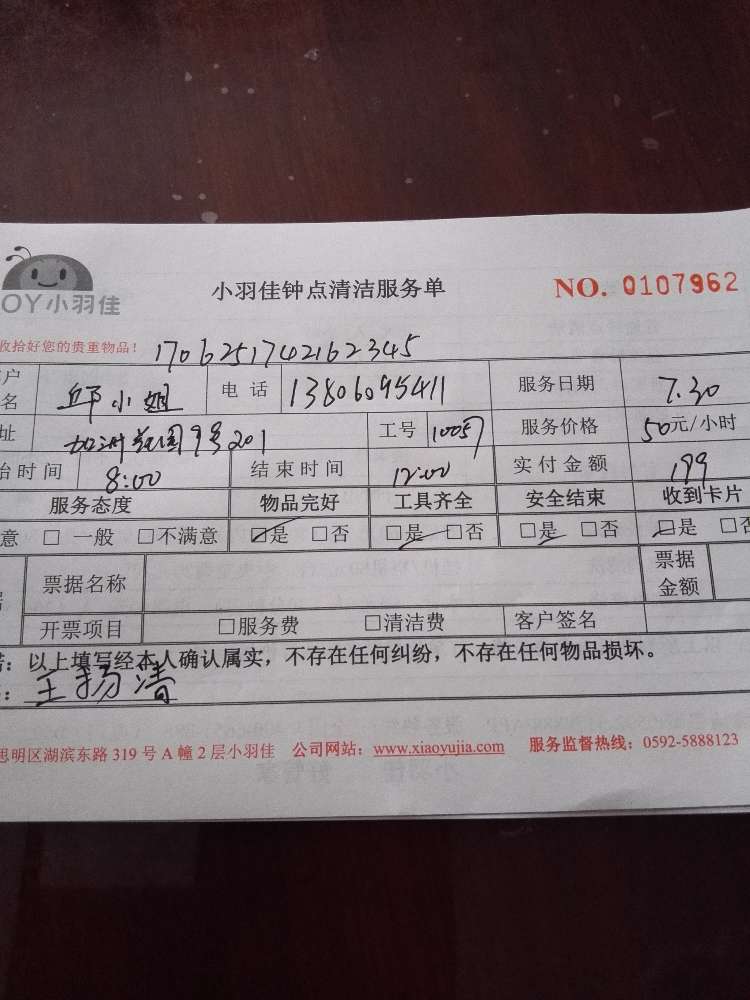 小羽佳钟点清洁服务单 NO. 0107962
OY小羽佳
收拾好您的贵重物品！ 1706251742162345
户名 邱小姐 电话 13806095411 服务日期 7.30
址 加洲花园9号201 工号 10057 服务价格 50元/小时
始时间 8:00 结束时间 12:00 实付金额 199
服务态度 物品完好 工具齐全 安全结束 收到卡片
意 □ 一般 □不满意 □是 □否 □是 □否 □是 □否 □是 □否
票据名称 票据金额
开票项目 □服务费 □清洁费 客户签名
：以上填写经本人确认属实，不存在任何纠纷，不存在任何物品损坏。
：王扬清
思明区湖滨东路 319 号 A 幢 2 层小羽佳 公司网站：www.xiaoyujia.com 服务监督热线：0592-5888123